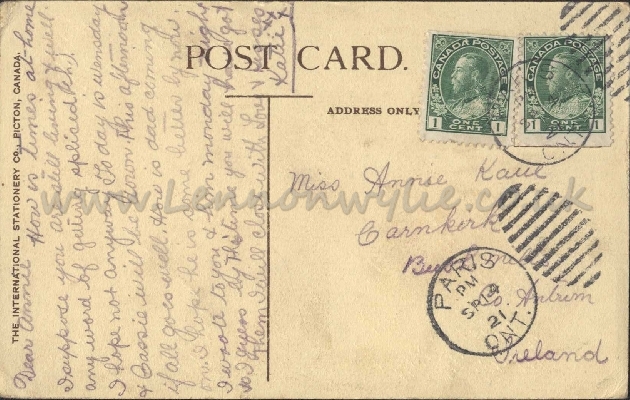 POST CARD.
ADDRESS ONLY
THE INTERNATIONAL STATIONERY CO., PICTON, CANADA.
CANADA POSTAGE
1 ONE CENT 1
CANADA POSTAGE
1 ONE CENT 1
ONT
PARIS
PM
SP 14
21
ONT.
Miss Annie Kane
Carnkirk
Co. Antrim
Ireland
Dear Annie How is times at home
I suppose you are still living & well
any word of getting spliced eh,
I hope not anyway. To day is wensday
& Cassie will be down this afternoon
if all goes well. How is dad coming
on. I hope he is some better by now.
I wrote to you & him monday night
so I guess by this time you will have got
them I will close with Love
Katie
www.Lennonwylie.co.uk